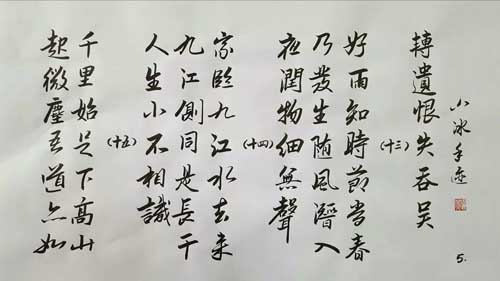 小冰手迹
轉遺恨失吞吴
(十三)
好雨知時節當春
乃發生随風潛入
夜潤物細無聲
(十四)
家臨九江水去来
九江側同是長干
人生小不相識
(十五)
千里始足下高山
起微塵吾道亦如
5.